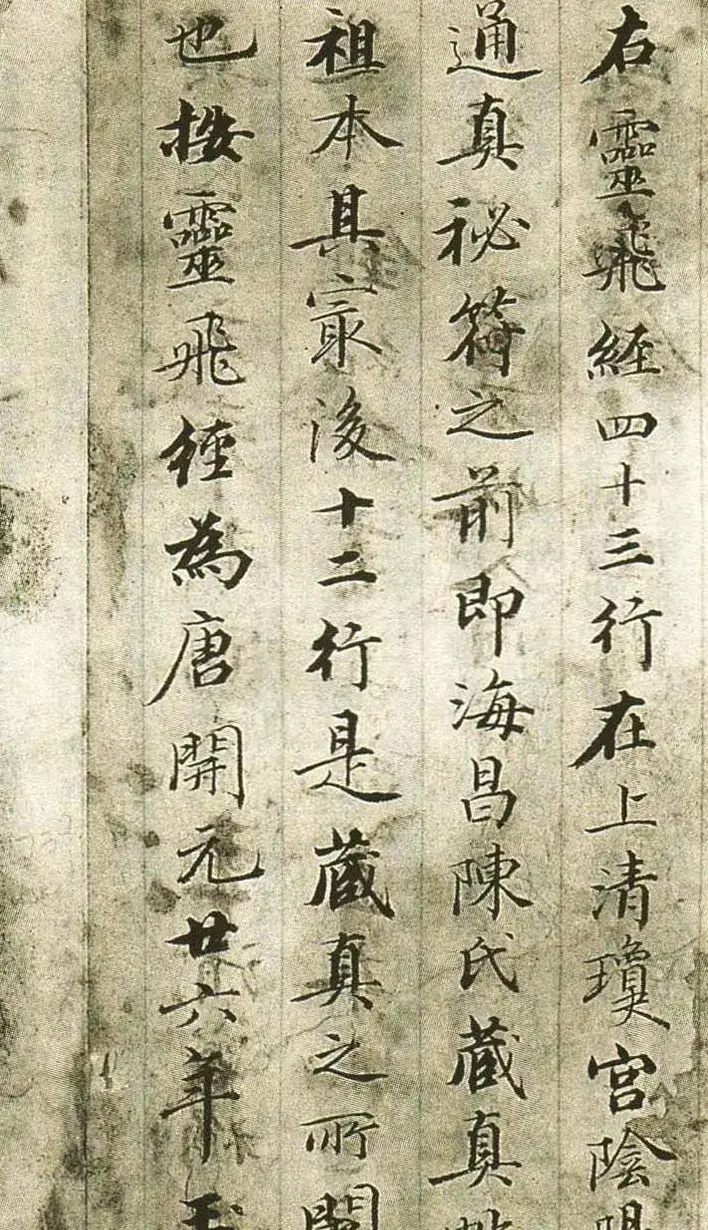 右靈飛經四十三行在上清瓊宮陰陽
通真秘符之前即海昌陳氏藏真
祖本其冣後十二行是藏真之所闕
也按靈飛經為唐開元廿六年玉